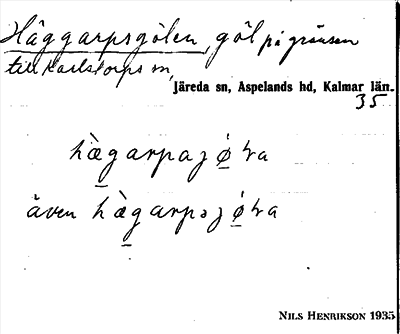 Häggarpsgölen, göl på gränsen
till Karlstorps sn,
Järeda sn, Aspelands hd, Kalmar län.
35
hæ̀garpajǿꝉa
även hæ̀garpəjǿꝉa
NILS HENRIKSON 1935